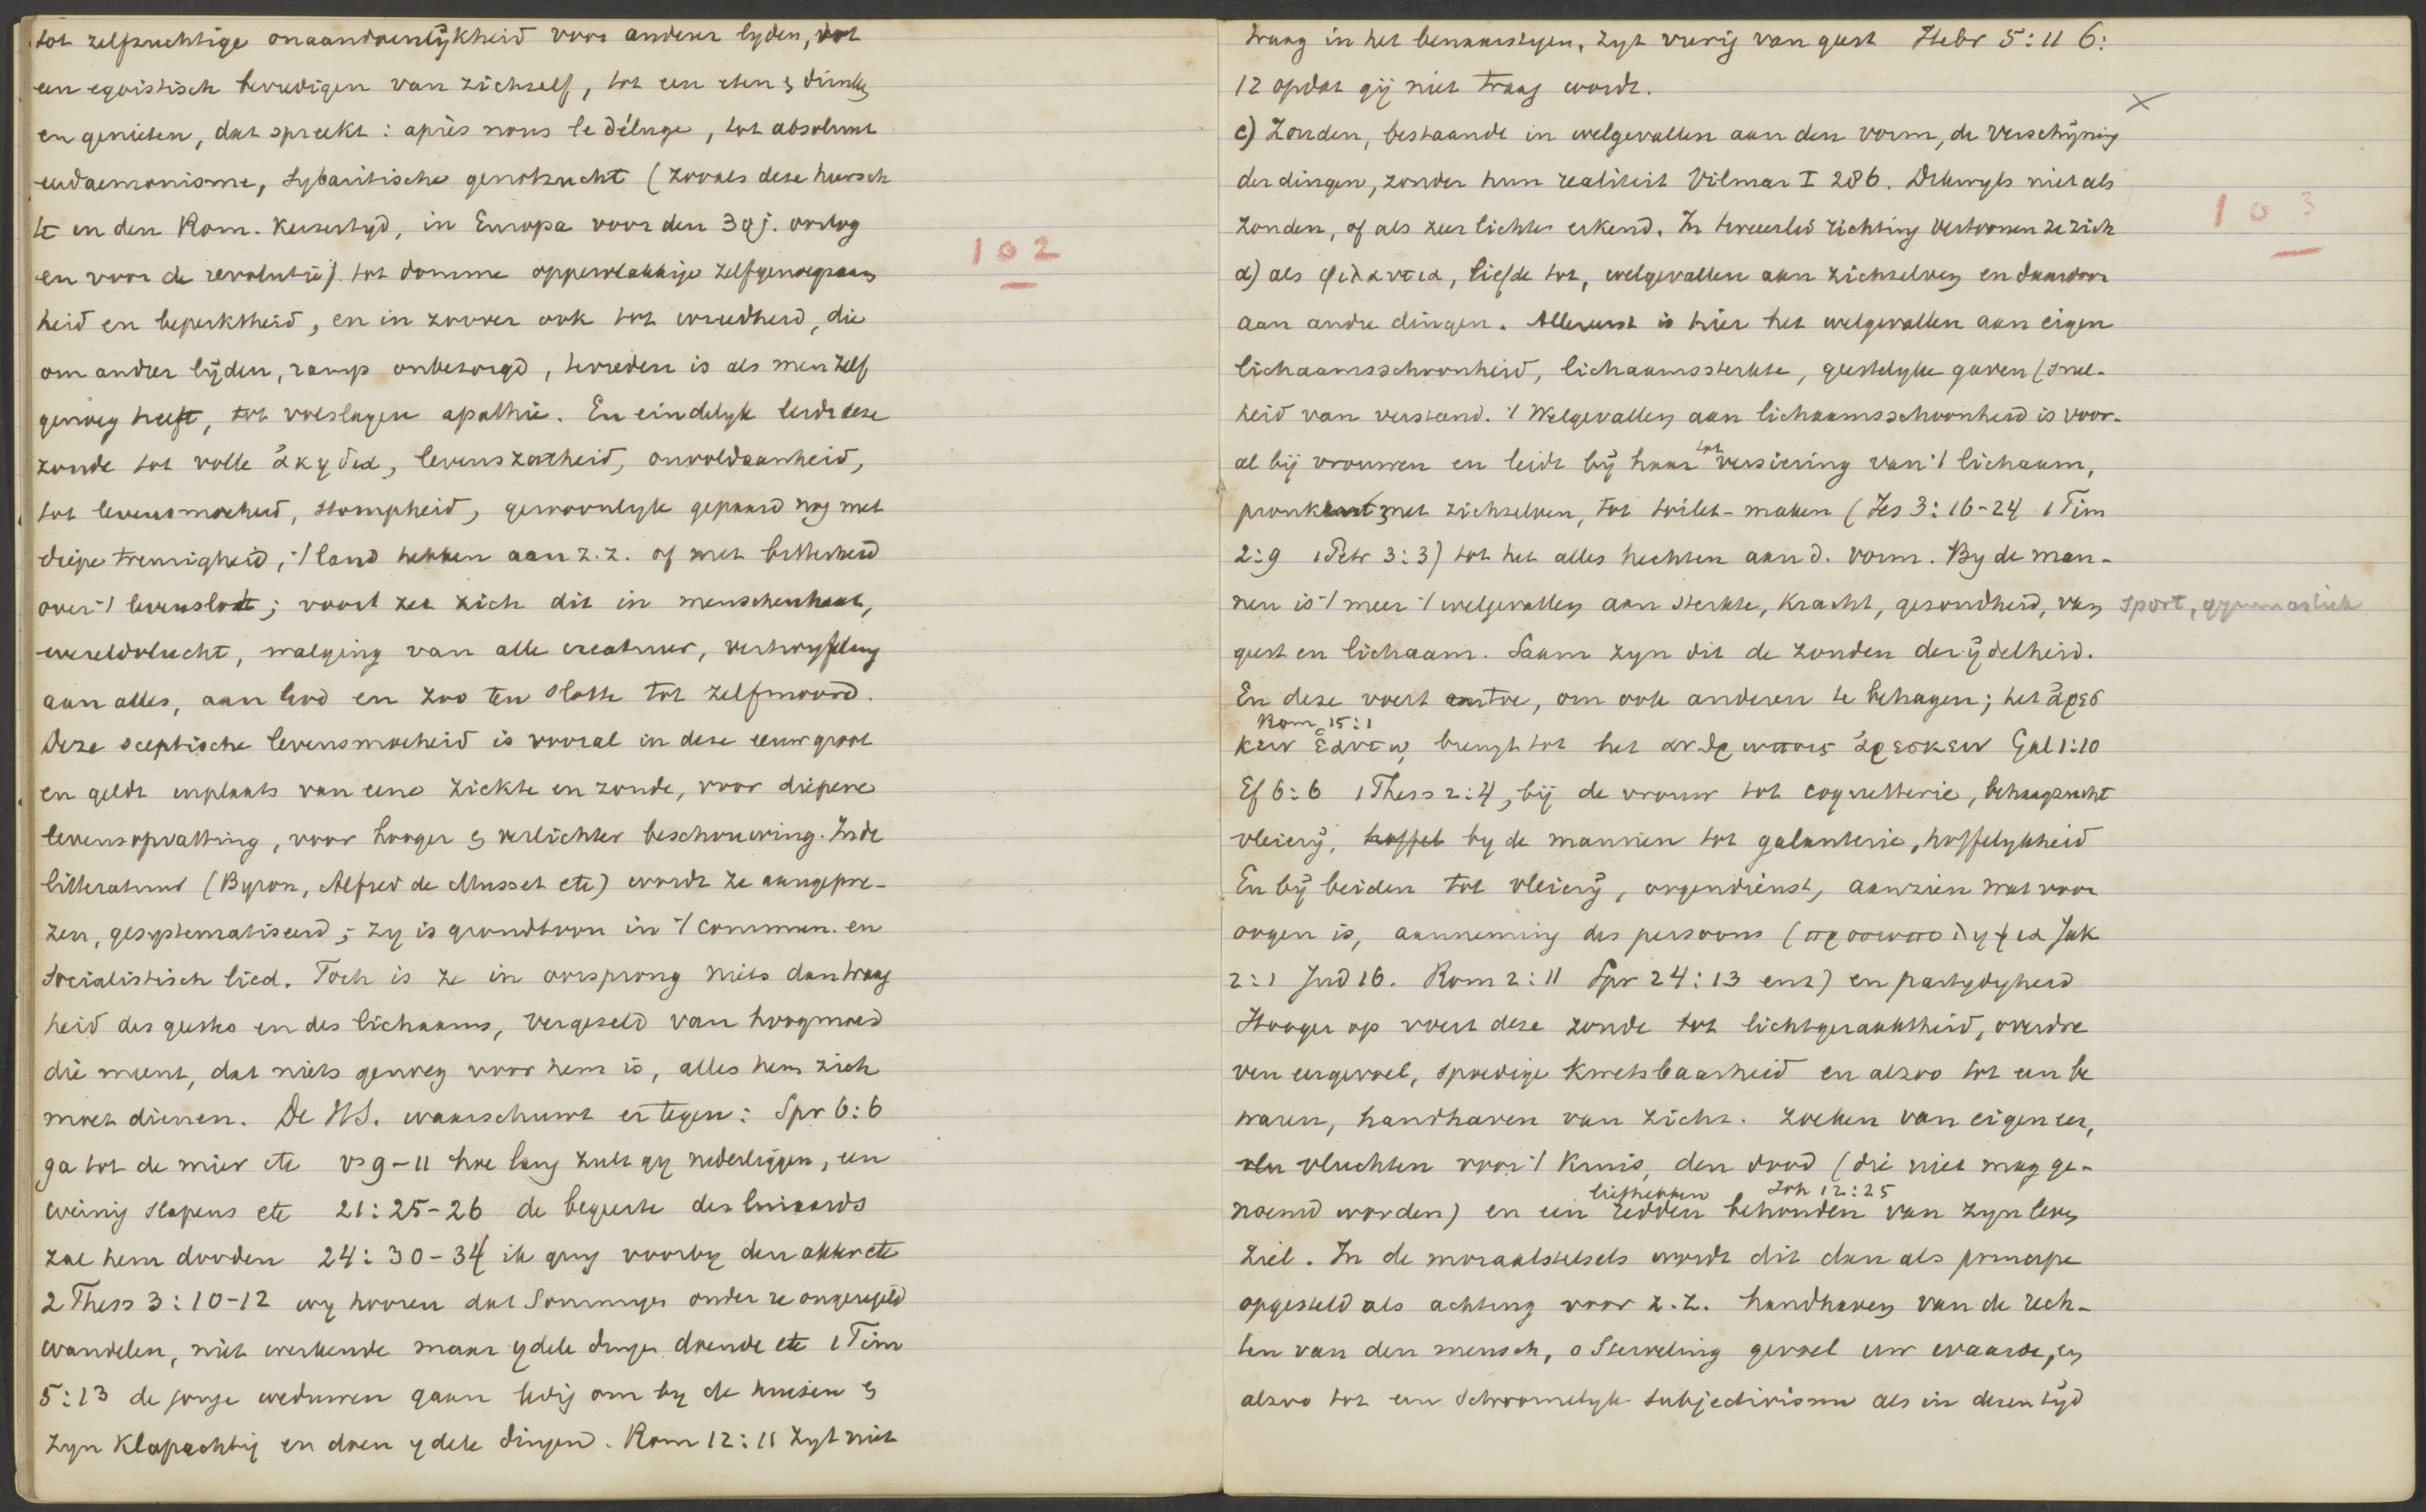 tot zelfzuchtige onaandoenlijkheid voor anderer lyden, tot
een egoistisch bevredigen van zichzelf, tot een eten & drinken
en genieten, dat spreekt: après nous le déluge, tot absoluut
eudaemonisme, sybaritische genotzucht (zooals deze heersch
te in den Rom. Keizertyd, in Europa voor den 30 j. oorlog
en voor de revolutie) tot domme oppervlakkige zelfgenoegzaam
heid en beperktheid, en in zoover ook tot wreedheid, die
om andrer lijden, ramp onbezorgd, tevreden is als men zelf
genoeg heeft, tot volslagen apathie. En eindelyk leidt deze
zonde tot volle ἀκηδια, levenszatheid, onvoldaanheid,
tot levensmoeheid, stompheid, gewoonlyk gepaard nog met
diepe treurigheid, 't land hebben aan z.z. of met bitterheid
over 't levenslot; voorts zet zich dit in menschenhaat,
wereldvlucht, walging van alle creatuur, vertwyfeling
aan alles, aan God en zoo ten slotte tot zelfmoord.
Deze sceptische levensmoeheid is vooral in deze eeuw groot
en geldt inplaats van eene ziekte en zonde, voor diepere
levensopvatting, voor hooger & verlichter beschouwing. In de
litteratuur (Byron, Alfred de Musset etc) wordt ze aangepre-
zen, gesystematiseerd; zy is grondtoon in 't commun. en
socialistisch lied. Toch is ze in oorsprong niets dan traag
heid des geestes en des lichaams, vergezeld van hoogmoed
die meent, dat niets genoeg voor hem is, alles hem zich
moet dienen. De H.S. waarschuwt er tegen: Spr 6:6
ga tot de mier etc vs 9-11 hoe lang zult gy nederliggen, een
weinig slapens etc 21:25-26 de begeerte des luiaards
zal hem dooden 24:30-34 ik ging voorby den akker etc
2 Thess 3:10-12 wy hooren dat Sommigen onder ze ongeregeld
wandelen, niet werkende maar ydele dingen doende etc 1 Tim
5:13 de jonge weduwen gaan ledig om by de huizen &
zyn klapachtig en doen ydele dingen. Rom 12:11 Zyt niet
102
traag in het benaarstigen, zyt vurig van geest Hebr 5:11 6:
12 opdat gij niet traag wordt.
c) Zonden, bestaande in welgevallen aan den vorm, de verschijning
der dingen, zonder hun realiteit Vilmar I 286. Dikwyls niet als
zonden, of als zeer lichte erkend. In tweeerlei richting vertoonen ze zich
α) als φιλαυτια, liefde tot, welgevallen aan zichzelven en daardoor
aan andre dingen. Allereerst is hier het welgevallen aan eigen
lichaamsschoonheid, lichaamssterkte, geestelyke gaven (snel-
heid van verstand. 't Welgevallen aan lichaamsschoonheid is voor-
al bij vrouwen en leidt bij haar tot versiering van 't lichaam,
pronken met zichzelven, tot toilet-maken (Jes 3:16-24 1 Tim
2:9 1 Petr 3:3) tot het alles hechten aan d. vorm. By de man-
nen is 't meer 't welgevallen aan sterkte, kracht, gezondheid, van sport, gymnastiek
geest en lichaam. Saam zyn dit de zonden der ijdelheid.
En deze voert ertoe, om ook anderen te behagen; het ἀρεσ
Rom 15:1
κειν ἑαυτῳ, brengt tot het ανθρωποις ἀρεσκειν Gal 1:10
Ef 6:6 1 Thess 2:4, bij de vrouw tot coquetterie, behaagzucht
vleierij, hoffel by de mannen tot galanterie, hoffelykheid
En bij beiden tot vleierij, oogendienst, aanzien wat voor
oogen is, aanneming des persoons (προσωποληψια Jak
2:1 Jud 16. Rom 2:11 Spr 24:13 enz) en partydigheid
Hooger op voert deze zonde tot lichtgeraaktheid, overdre
ven eergevoel, spoedige kwetsbaarheid en alzoo tot een be
waren, handhaven van zichz. zoeken van eigen eer,
vlu vluchten voor 't kruis, den dood (die niet mag ge-
liefhebben Joh 12:25
noemd worden) en een redden behouden van zyn leven
ziel. In de moraalstelsels wordt dit dan als principe
opgesteld als achting voor z.z. handhaven van de rech-
ten van den mensch, o Sterveling gevoel uw waarde, en
alzoo tot een schroomelyk subjectivisme als in dezen tijd
103